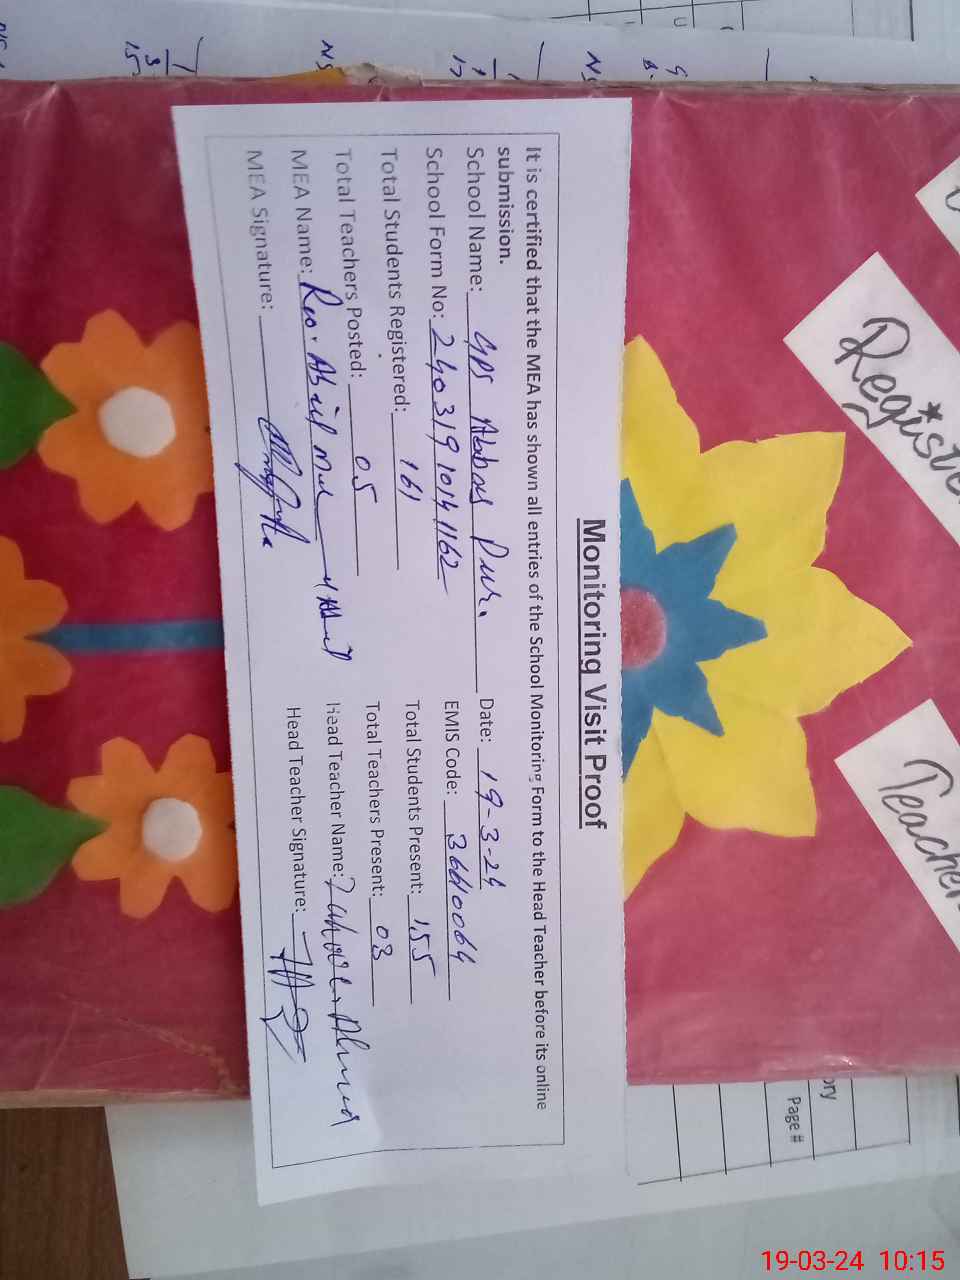 Monitoring Visit Proof
It is certified that the MEA has shown all entries of the School Monitoring Form to the Head Teacher before its online
submission.
School Name: GPS Abbas Pur. Date: 19-3-24
School Form No: 24031910141162 EMIS Code: 36610064
Total Students Registered: 161 Total Students Present: 155
Total Teachers Posted: 05 Total Teachers Present: 03
MEA Name: Head Teacher Name: Ahmed
MEA Signature: Head Teacher Signature:
Register
Teacher
ory
Page #
19-03-24 10:15